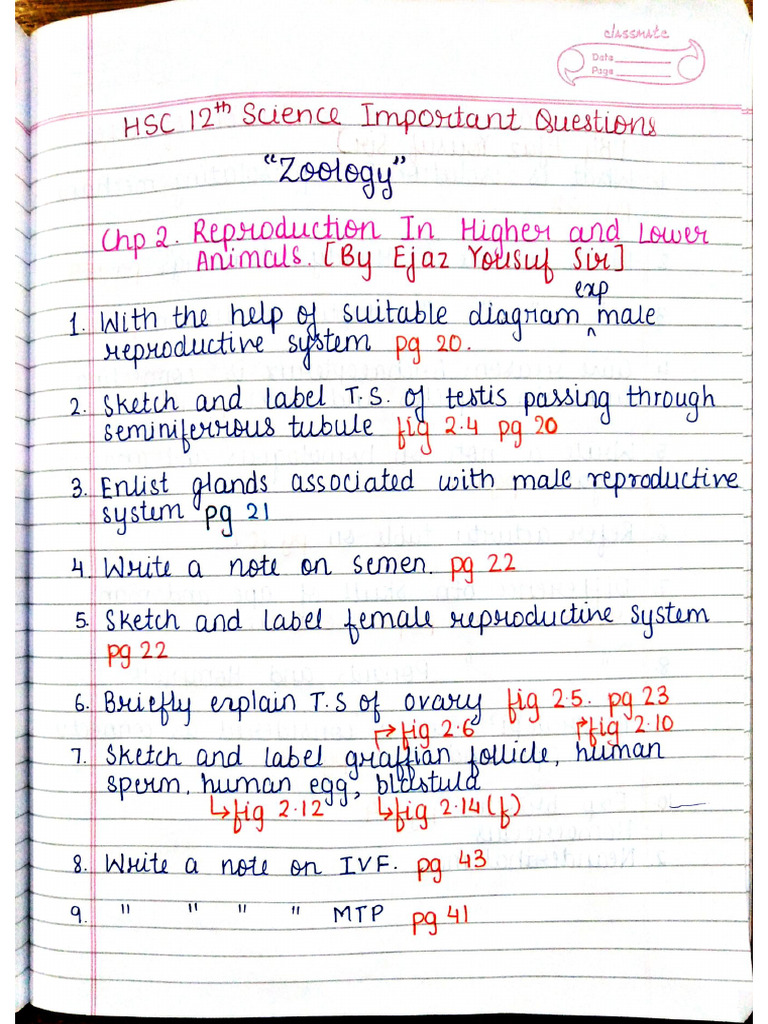 classmate
Date
Page
HSC 12th Science Important Questions
"Zoology"
Chp 2. Reproduction In Higher and Lower
Animals. [By Ejaz Yousuf Sir]
exp
1. With the help of suitable diagram ^ male
reproductive system pg 20.
2. Sketch and label T.S. of testis passing through
seminiferrous tubule fig 2.4 pg 20
3. Enlist glands associated with male reproductive
system pg 21
4. Write a note on semen. pg 22
5. Sketch and label female reproductive system
pg 22
6. Briefly explain T.S of ovary fig 2.5. pg 23
↱fig 2.6 ↱fig 2.10
7. Sketch and label graffian follicle, human
sperm, human egg, blastula
↳fig 2.12 ↳fig 2.14(f)
8. Write a note on IVF. pg 43
9. " " " " MTP pg 41